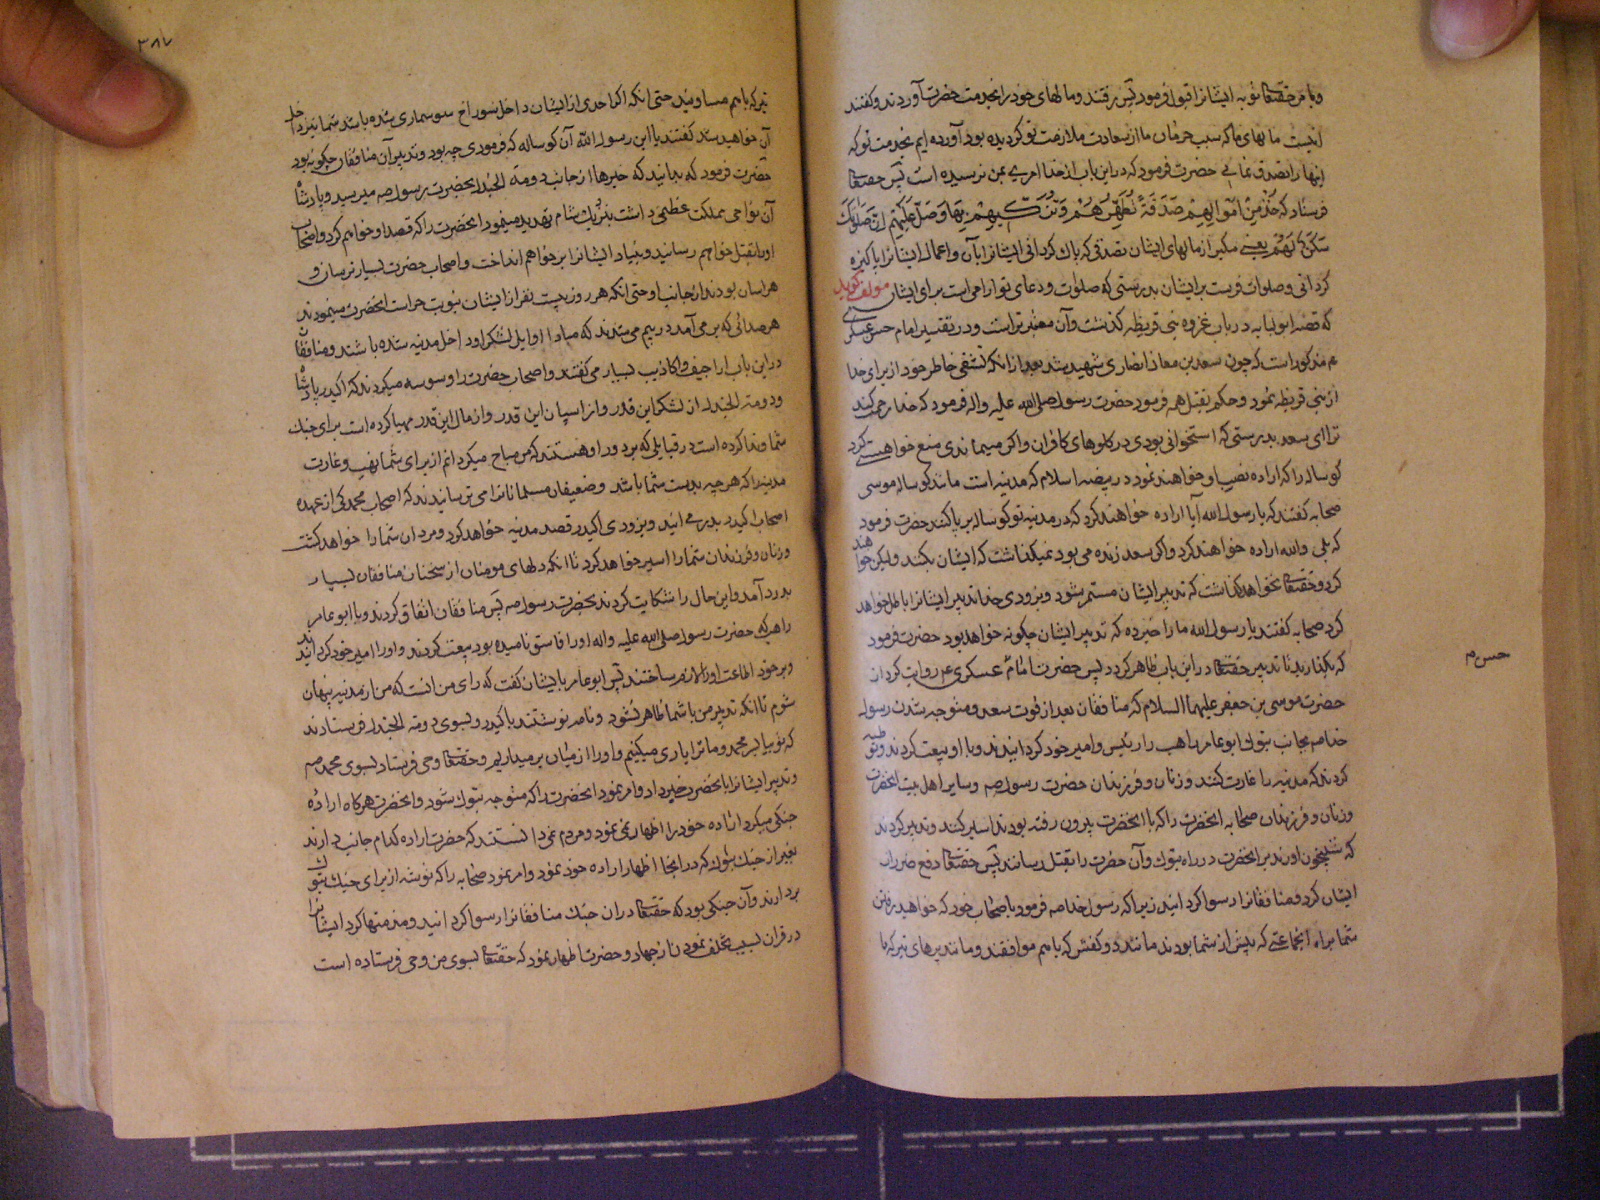 و با مر حقتعالی توبه ایشانرا قبول فرمود پس رفتند و مالهای خود را بخدمت حضرت آوردند و گفتند
اینست مالهای ما که سبب حرمان ما از سعادت ملازمت تو گردیده بود آورده ایم بخدمت تو که
اینها را تصدق نمائی حضرت فرمود که در این باب از خدا امری بمن نرسیده است پس حقتعالی
فرستاد که خُذْ مِنْ اَمْوالِهِمْ صَدَقَةً تُطَهِّرُهُمْ وَتُزَكِّيهِمْ بِهَا وَصَلِّ عَلَيْهِمْ اِنَّ صَلٰوتَكَ
سَكَنٌ لَهُمْ یعنی بگیر از مالهای ایشان تصدقی که پاک گردانی ایشانرا بآن و اعمال ایشانرا پاکیزه
گردانی و صلوات فرست بر ایشان بدرستی که صلوات و دعای تو آرامی است برای ایشان مولف گوید
که قصه ابو لبابه در باب غزوه بنی قریظه گذشت و آن معتبر تر است و در تفسیر امام حسن عسکری
ع مذکور است که چون سعد بن معاذ انصاری شهید شد بعد از آنکه تشفی خاطر خود از برای خدا
از بنی قریظه نمود و حکم بقتل هم فرمود حضرت رسول صلی الله علیه و اله فرمود که خدا رحمت کند
ترا ای سعد بدرستی که استخوانی بودی در گلوهای کافران و اگر میماندی منع خواهستی کرد
گوساله را که اراده نصب او خواهند نمود در بیضه اسلام که مدینه است مانند گوساله موسی
صحابه گفتند که یا رسول الله آیا اراده خواهند کرد که در مدینه تو گوساله بر پا کنند حضرت فرمود
که بلی والله اراده خواهند کرد و اگر سعد زنده می بود نمیگذاشت که ایشان بکنند ولیکن خواهند
کرد و حقتعالی نخواهد گذاشت که تدبیر ایشان مستمر بشود و بزودی خدا تدبیر ایشانرا باطل خواهد
کرد صحابه گفتند یا رسول الله ما را خبر ده که تدبیر ایشان چگونه خواهد بود حضرت فرمود
که بگذارید تا تدبیر حقتعالی در این باب ظاهر گردد پس حضرت امام عسکری ع روایت کرد از
حسن م
حضرت موسی بن جعفر علیهما السلام که منافقان بعد از فوت سعد و متوجه شدن رسول
خدا صم بجانب تبوک ابو عامر راهب را رئیس و امیر خود گردانیدند و با او بیعت کردند و توطیه
کردند که مدینه را غارت کنند و زنان و فرزندان حضرت رسول صم و سایر اهل بیت آنحضرت
و زنان و فرزندان صحابه آنحضرت را که با آنحضرت بیرون رفته بودند اسیر کنند و تدبیر کردند
که شبیخون آورند بر آنحضرت در راه تبوک و آن حضرت را بقتل رسانند پس حقتعالی دفع ضرر از
ایشان کرد و منافقانرا رسوا گردانید زیرا که رسول خدا صم فرمود باصحاب خود که خواهید رفتن
شما براه آنجماعتی که پیش از شما بودند مانند دو کفش که با هم موافقند و مانند پرهای تیر که با
۳۸۷
تیر که با هم مساویند حتی انکه اگر احدی از ایشان داخل سوراخ سوسماری شده باشد شما نیز داخل
آن خواهید شد گفتند یا ابن رسول الله آن گوساله که فرمودی چه بود و تدبیر آن منافقان چگونه بود
حضرت فرمود که بدانید که خبرها از جانب دومة الجندل بحضرت رسول صم میرسید و پادشاه
آن نواحی مملکت عظیمی داشت بنزدیک شام تهدید مینمود انحضرت را که قصد او خواهم کرد و اصحاب
او را بقتل خواهم رسانید و بنیاد ایشانرا بر خواهم انداخت و اصحاب حضرت بسیار ترسان و
هراسان بودند از جانب او حتی انکه هر روز بیست نفر از ایشان بنوبت حراست انحضرت مینمودند
هر صدائی که بر می آمد در بیم می شدند که مبادا اوایل لشکر او داخل مدینه شده باشند و منافقان
در این باب اراجیف و اکاذیب بسیار می گفتند و اصحاب حضرت را وسوسه میکردند که اکیدر پادشاه
دومة الجندل از لشکر این قدر و از اسپان این قدر و از مال این قدر مهیا کرده است برای جنک
شما و ندا کرده است در قبایلی که بر دور او هستند که من مباح میگردانم از برای شما نهب و غارت
مدینه را که هر چه بدست شما باشد و ضعیفان مسلمانانرا می ترسانیدند که اصحاب محمد کی از عهده
اصحاب اکیدر بدر می آیند و بزودی اکیدر قصد مدینه خواهد کرد و مردان شما را خواهد کشت
و زنان و فرزندان شما را اسیر خواهد کرد تا انکه دلهای مومنان از سخنان منافقان بسیار
بدرد آمد و این حال را شکایت کردند بحضرت رسول صم پس منافقان اتفاق کردند و با ابو عامر
راهب که حضرت رسول صلی الله علیه و اله او را فاسق نامیده بود بیعت کردند و او را امیر خود گردانیدند
و بر خود اطاعت او را لازم ساختند پس ابو عامر بایشان گفت که رای من انست که من از مدینه پنهان
شوم تا انکه تدبیر من با شما ظاهر نشود و نامه نوشتند باکیدر و بسوی دومة الجندل فرستادند
که تو بیا بر محمد و ما ترا یاری میکنیم و او را از میان بر میداریم و حقتعالی وحی فرستاد بسوی محمد صم
و تدبیر ایشانرا بانحضرت خبر داد و امر نمود انحضرت را که متوجه تبوک شود و انحضرت هر گاه اراده
جنکی میکرد اراده خود را اظهار نمی نمود و مردم نمی دانستند که حضرت اراده کدام جانب دارند
بغیر از جنک تبوک که در اینجا اظهار اراده خود نمود و امر نمود صحابه را که توشه از برای جنک تبوک
بردارند و آن جنکی بود که حقتعالی در ان جنک منافقانرا رسوا گردانید و مذمتها کرد ایشانرا
در قران بسبب تخلف نمودن از جهاد و حضرت اظهار نمود که حقتعالی بسوی من وحی فرستاده است